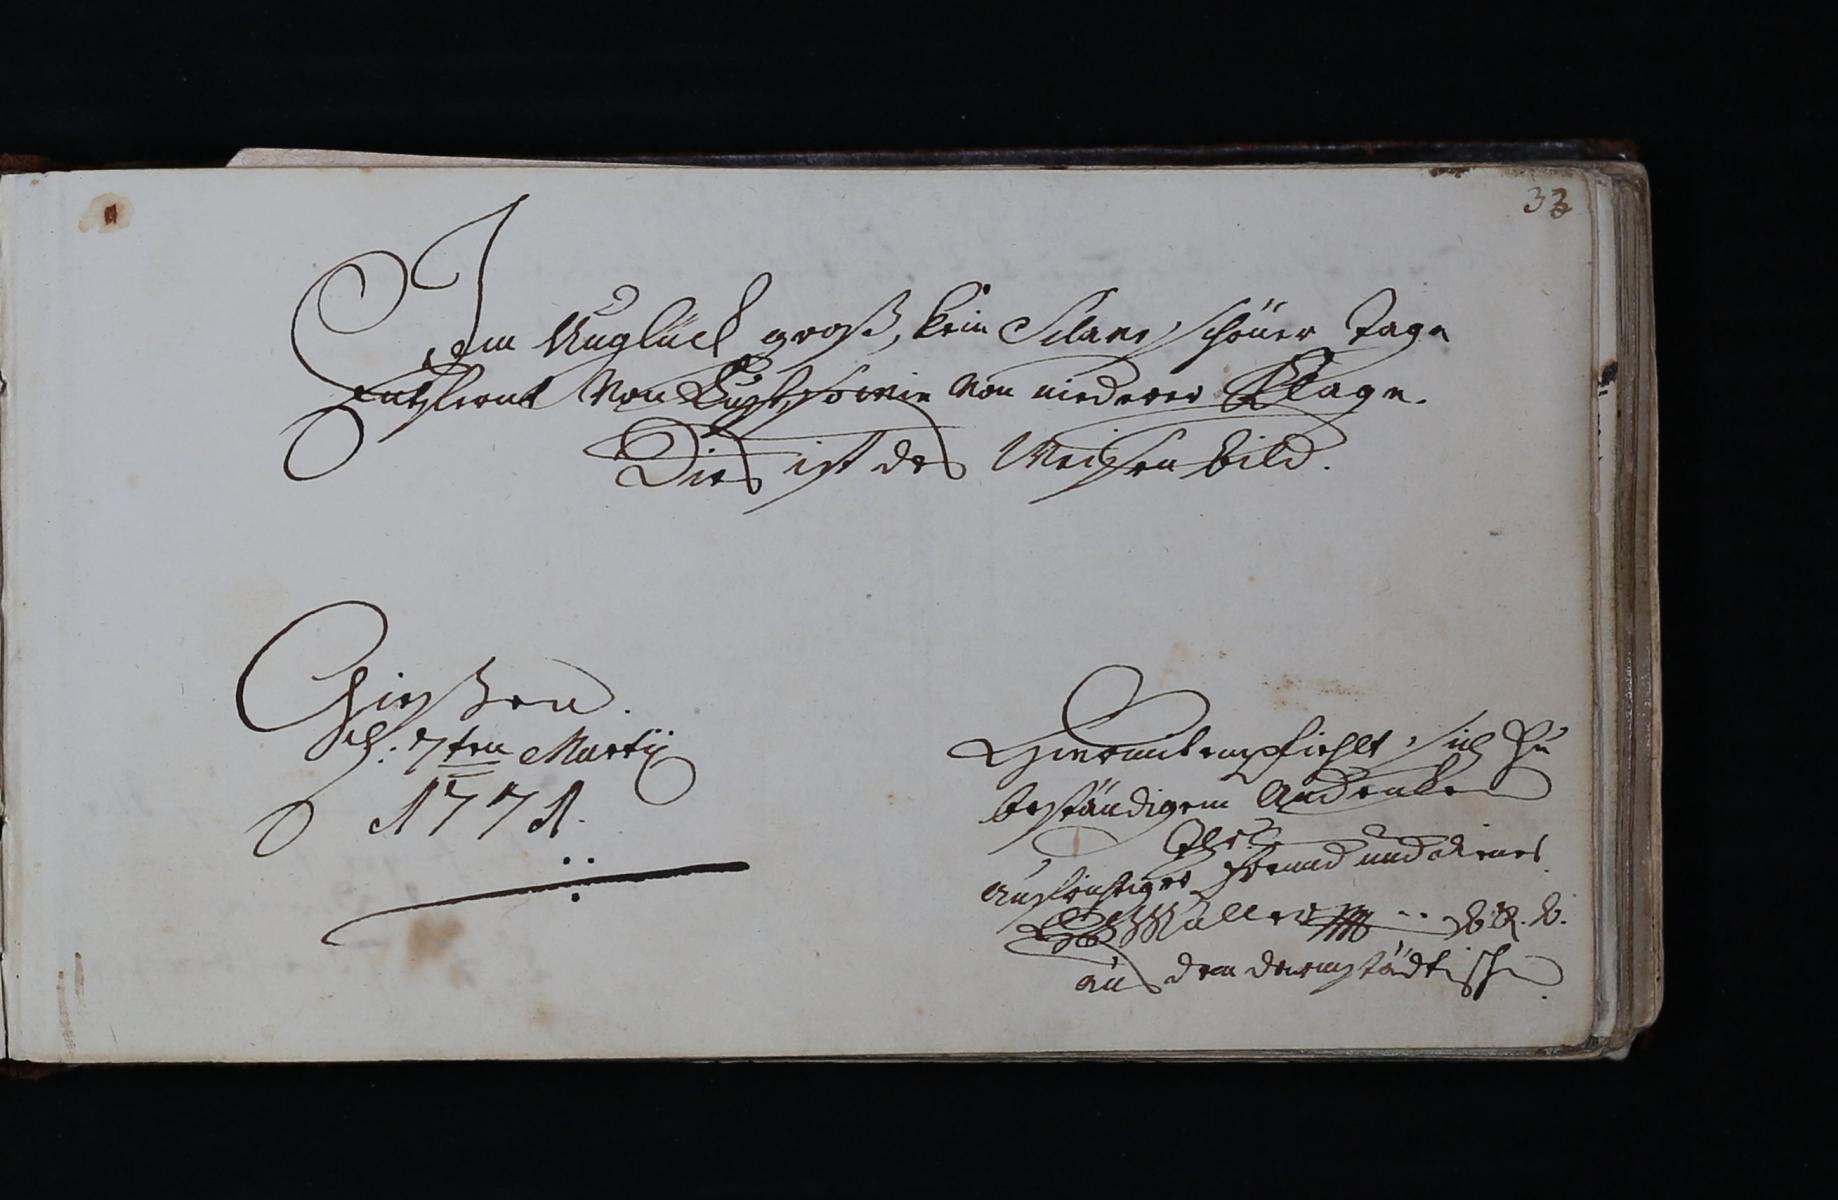 33
Im Unglück groß, kein Sclav schöner Tage
Entfernt von Lust, sowie von niederer Klage.
Dies ist des Weisen bild.
Gießen.
d. 7ten Martij
1771.
Hiermit empfiehlt sich zu
beständigem Andenken
aufrichtiger Freund und diener
Müller
aus dem darmstädtischen